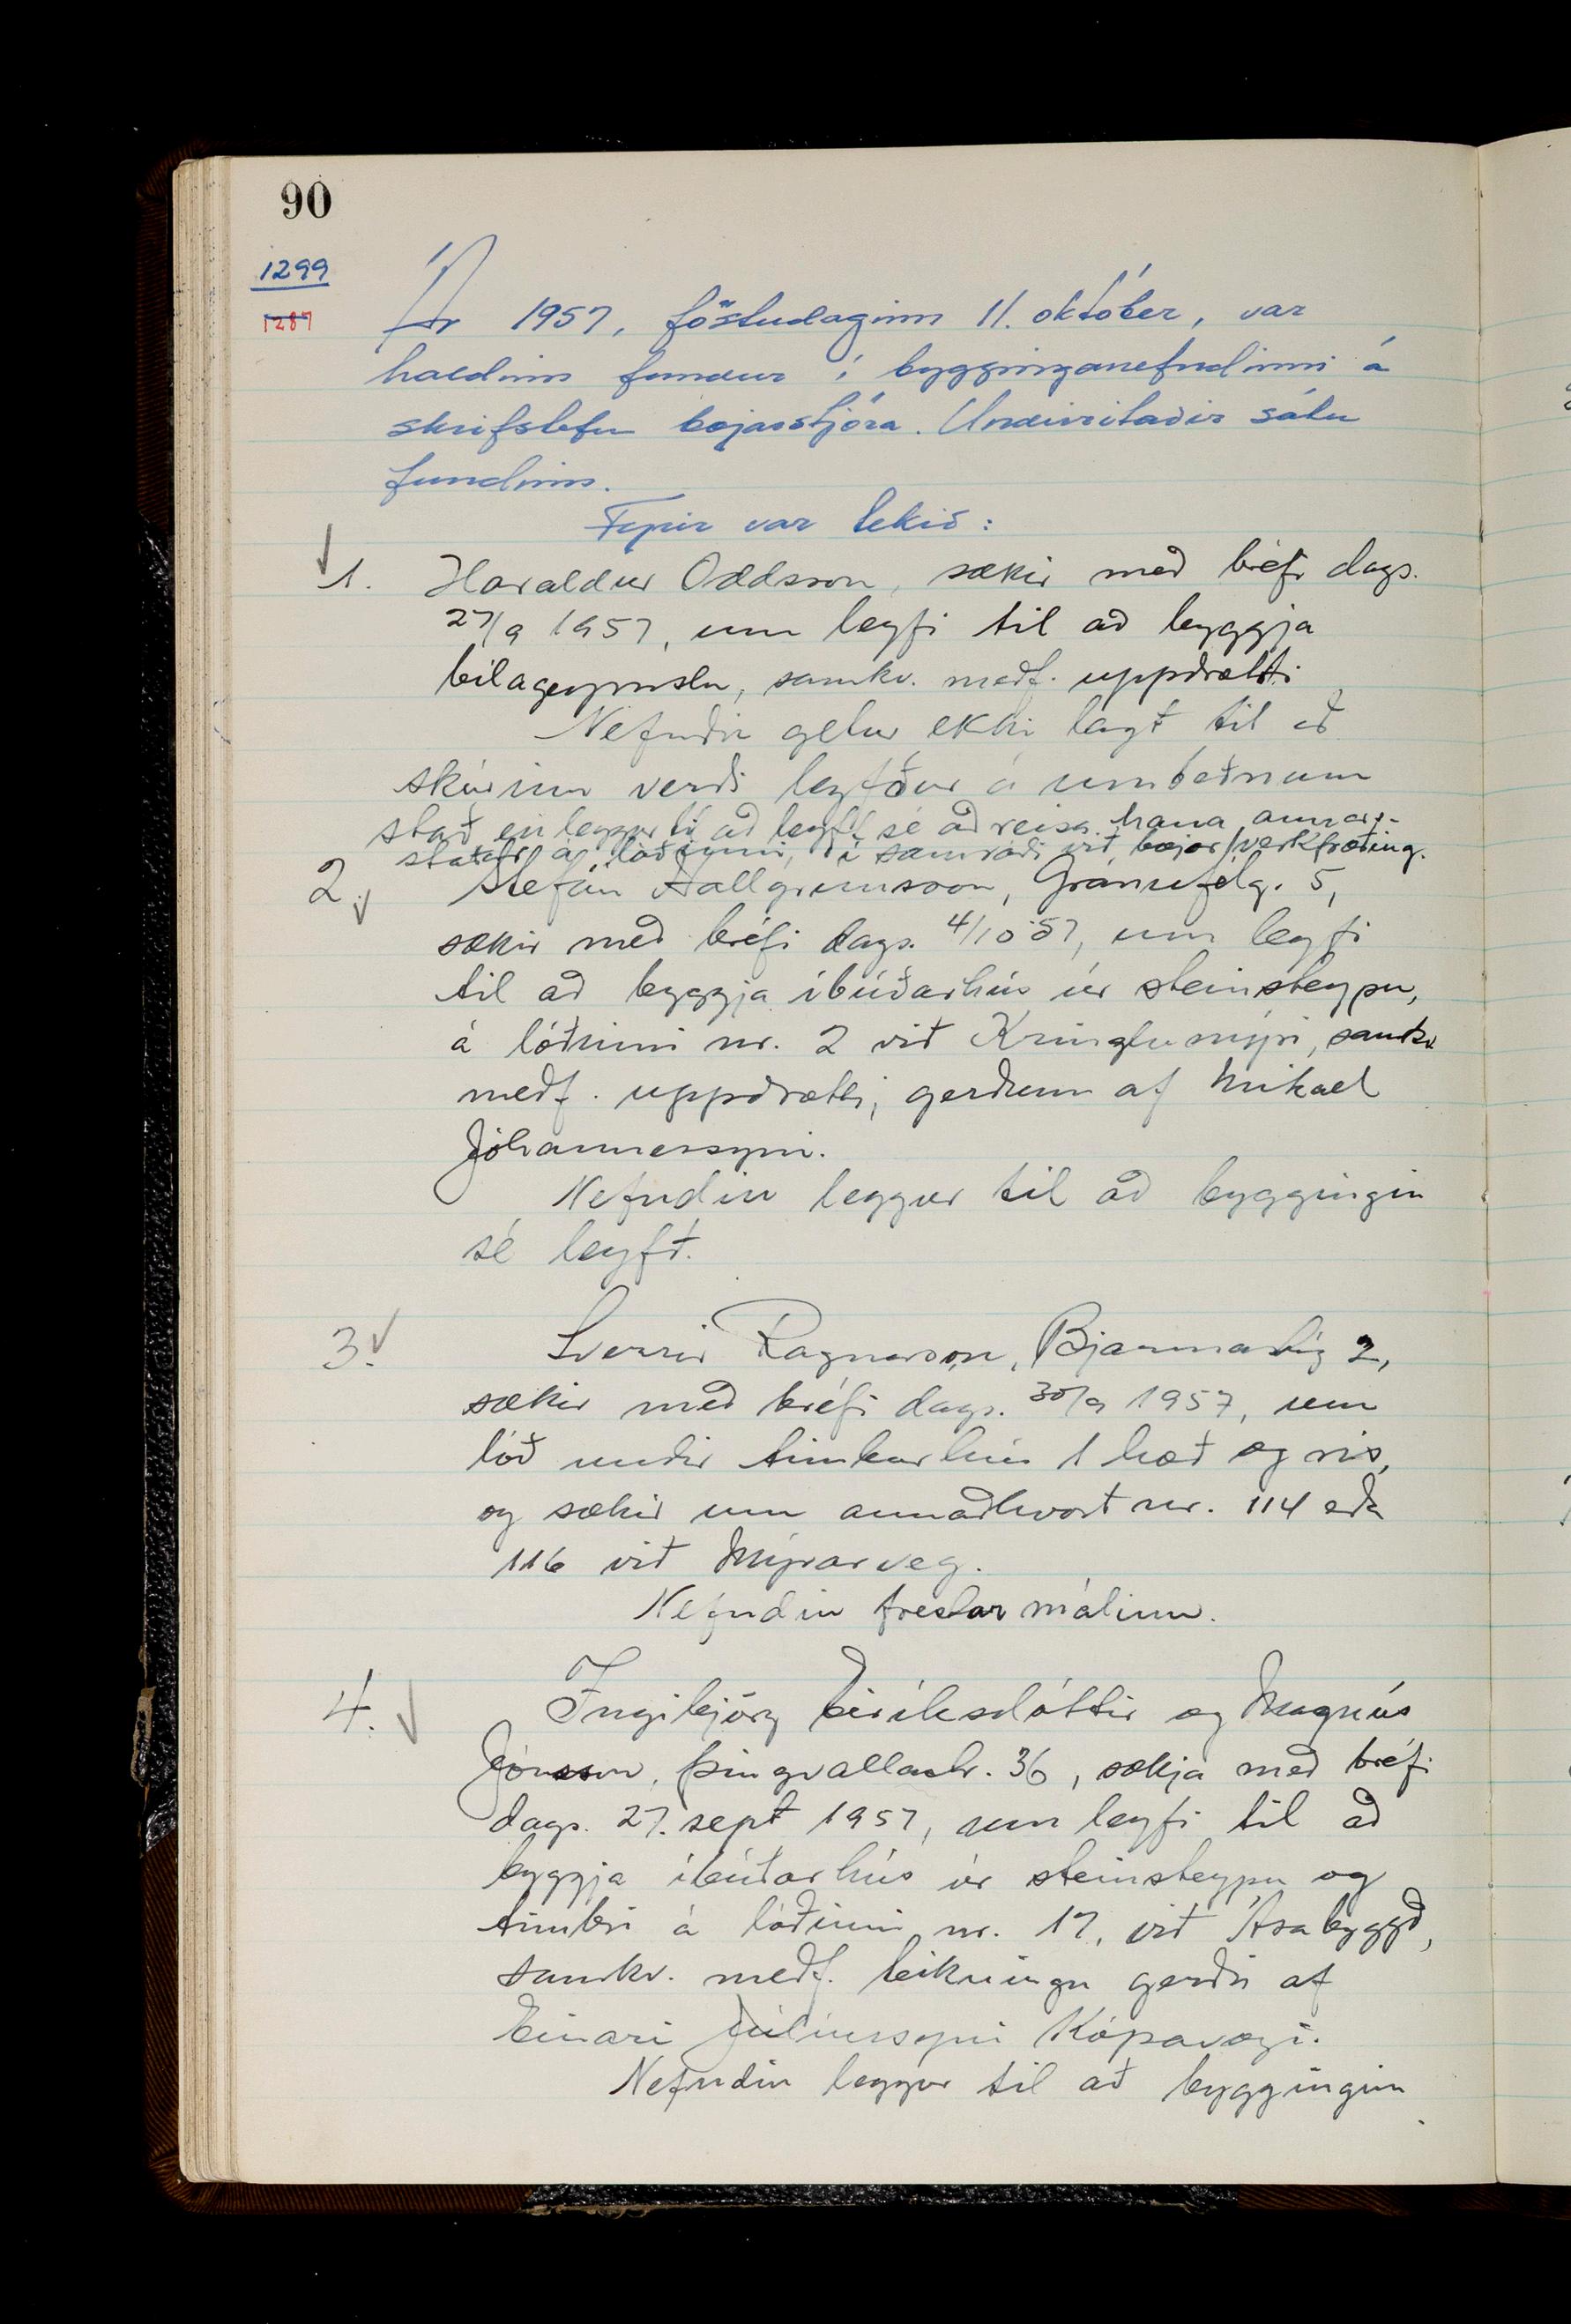 90
1299
1287
Ár 1957, föstudaginn 11. október, var
haldinn fundur í bygginganefndinni á
skrifstofu bæjarstjóra. Undirritaðir sátu
fundinn.
Fyrir var tekið:
1. Haraldur Oddsson, sækir með bréfi dags.
27/9 1957, um leyfi til að byggja
bílageymslu, samkv. meðf. uppdrætti
Nefndin getur ekki lagt til að
skúrinn verði leyfður á umbeðnum
stað en leggur til að leyft sé að reisa hana annars-
staðar á lóðinni, í samráði við bæjarverkfræðing.
2. Stefán Hallgrímsson, Gránufélg. 5,
sækir með bréfi dags. 4/10 '57, um leyfi
til að byggja íbúðarhús úr steinsteypu,
á lóðinni nr. 2 við Kringlumýri, samkv.
meðf. uppdrætti, gerðum af Mikael
Jóhannessyni.
Nefndin leggur til að byggingin
sé leyfð.
3. Sverrir Ragnarsson, Bjarmastíg 2,
sækir með bréfi dags. 30/9 1957, um
lóð undir timburhús 1 hæð og ris,
og sækir um annaðhvort nr. 114 eða
116 við Mýrarveg.
Nefndin frestar málinu.
4. Ingibjörg Eiríksdóttir og Magnús
Jónsson, Þingvallastr. 36, sækja með bréfi
dags. 27. sept 1957, um leyfi til að
byggja íbúðarhús úr steinsteypu og
timbri á lóðinni nr. 17, við Ásabyggð,
samkv. meðf. teikningu gerðri af
Einari Júlíussyni Kópavogi.
Nefndin leggur til að byggingin